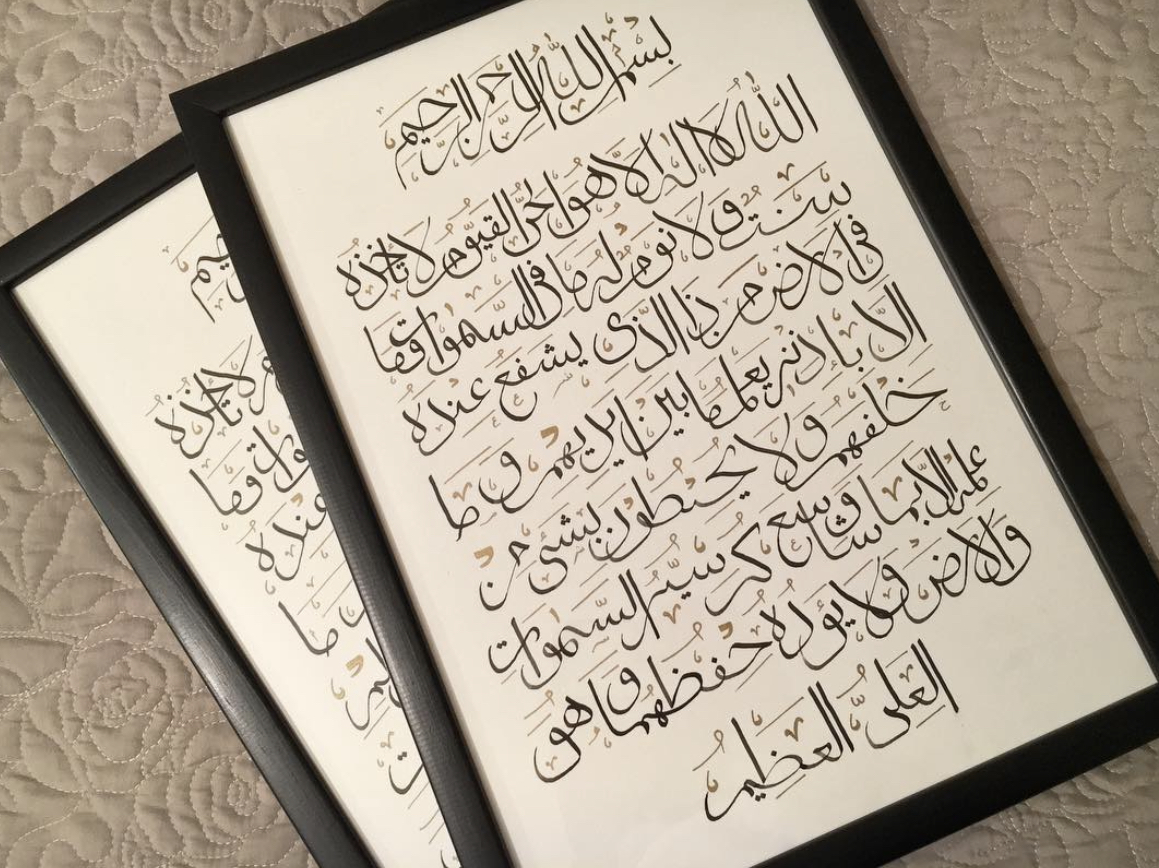 بسم الله الرحمن الرحيم
الله لا اله الا هو الحي القيوم لا تأخذه
سنة ولا نوم له ما في السموات وما
في الارض من ذا الذي يشفع عنده
الا باذنه يعلم ما بين ايديهم وما
خلفهم ولا يحيطون بشيء من
علمه الا بما شاء وسع كرسيه السموات
والارض ولا يؤده حفظهما وهو
العلي العظيم
لا تأخذه
وما
عنده
ما